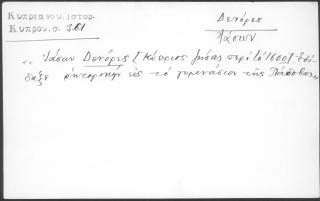 Κυπριανού. Ιστορ.
Κύπρου. σ. 381
Δενόρες
Ιάσων
„ Ἰάσων Δενόρες [Κύπριος ζήσας περί τό 1600] ἐδί-
δαξε ρητορικήν εἰς τό γυμνάσιον τῆς Πάδοβας „